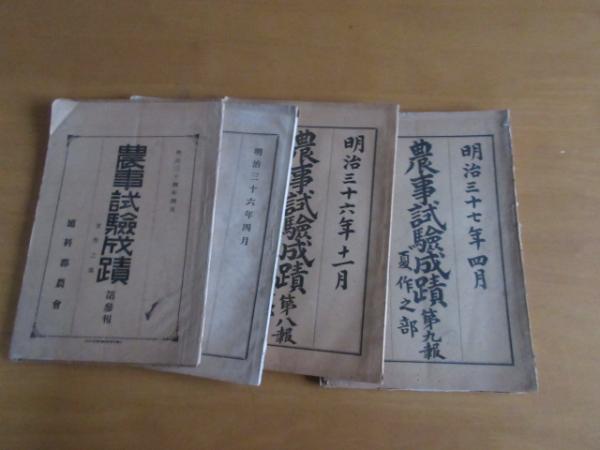 明治三十七年四月
農事試驗成蹟 第九報
夏作之部
明治三十六年十一月
農事試驗成蹟 第八報
明治三十六年四月
農事試驗成蹟 第參報
埴科郡農會